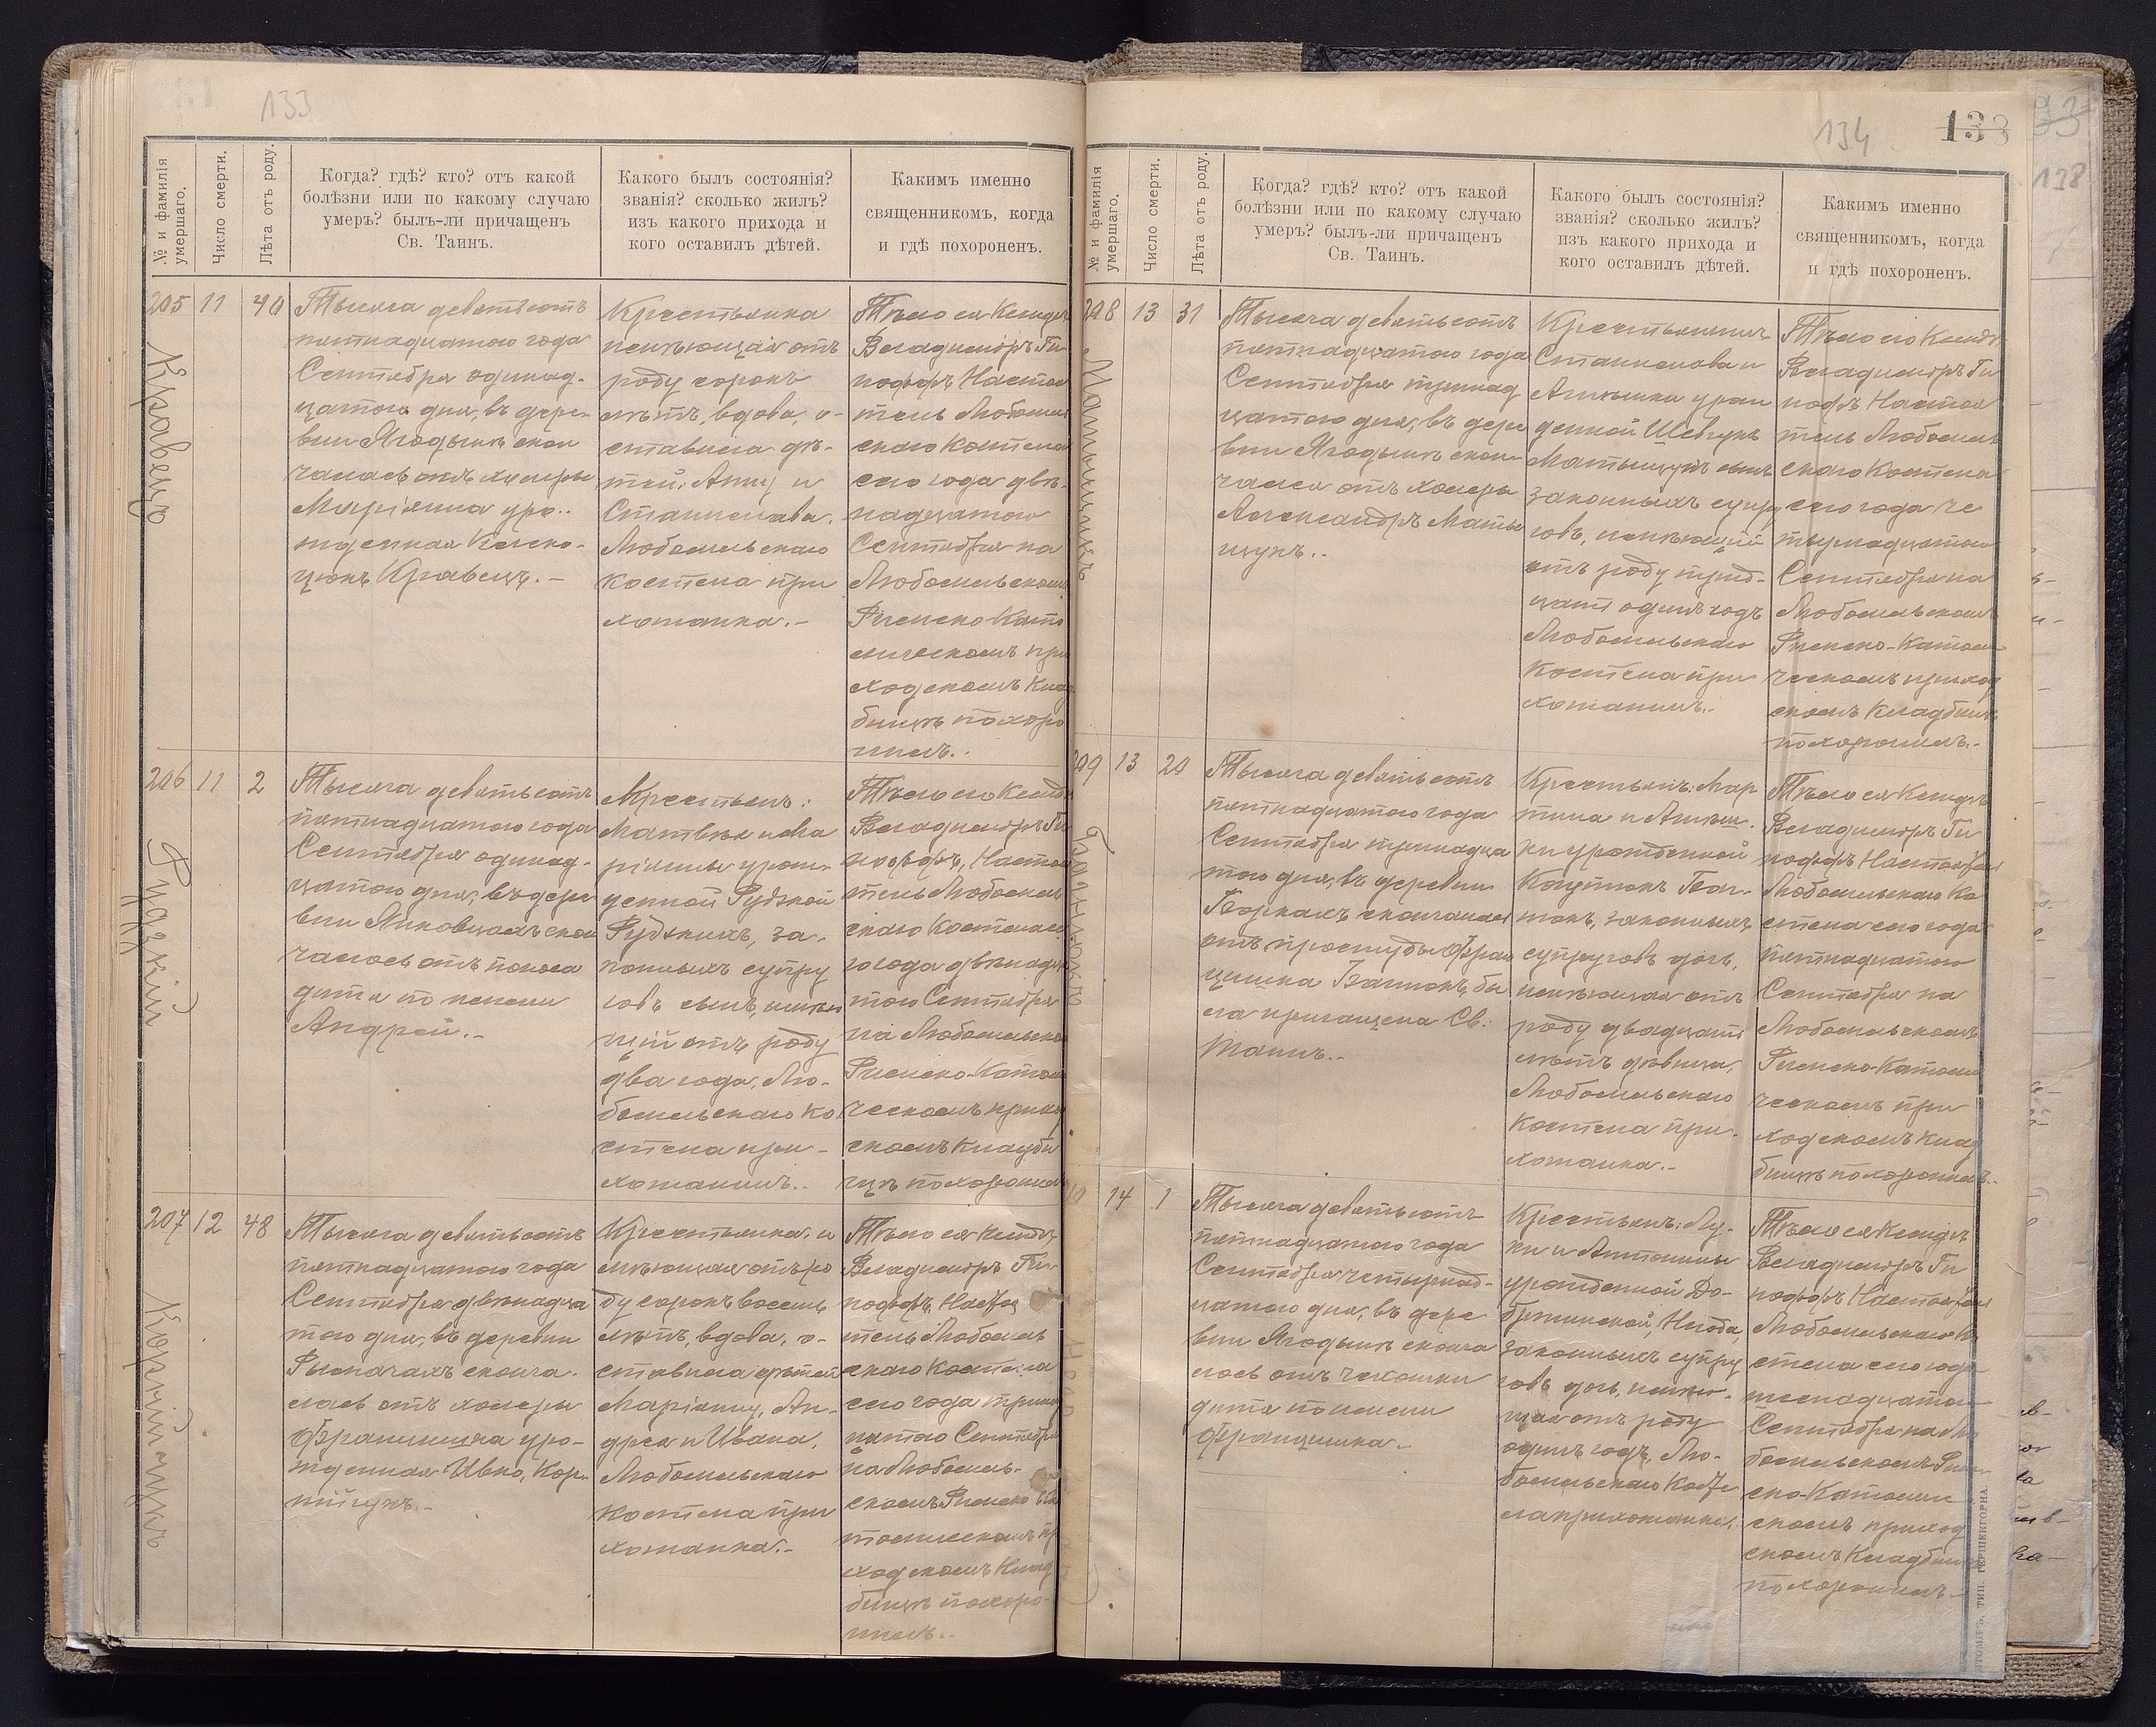 133
№ и фамилія умершаго.
Число смерти.
Лѣта отъ роду.
Когда? гдѣ? кто? отъ какой
болѣзни или по какому случаю
умеръ? былъ-ли причащенъ
Св. Таинъ.
Какого былъ состоянія?
званія? сколько жилъ?
изъ какого прихода и
кого оставилъ дѣтей.
Какимъ именно
священникомъ, когда
и гдѣ похороненъ.
205 11 40
Кравецъ
Тысяча девятьсотъ
пятнадцатого года
Сентября одинад-
цатого дня, въ дере-
вни Ягодынѣ скон
чалась отъ холеры
Маріянна уро-
жденная
Кравецъ.-
Крестьянка
имѣющая отъ
роду сорокъ
лѣтъ, вдова, о-
ставила дѣ-
тей: Анну и
Станислава.
Любомльскаго
костела при
хожанка.-
Тѣло ея Ксендзъ
Владиміръ Ги
пофъ Настоя
тель Любомль
скаго Костела
сего года двѣ-
надцатого
Сентября на
Любомльскомъ
Римско-Като
лическомъ при
ходскомъ Клад
бищѣ похоро
нилъ.-
206 11 2
Рудзкій
Тысяча девятьсотъ
пятнадцатого года
Сентября одинад-
цатого дня, въ дере
вни скон
чалось отъ поноса
дитя по имени
Андрей.-
Крестьянъ:
Матвѣя и Ма
ріянны урож-
денной Рудзкой
Рудзкихъ, за-
конныхъ супру
говъ сынъ, имѣю
щій отъ роду
два года, Лю-
бомльскаго ко
стела при-
хожанинъ.-
Тѣло его Ксендзъ
Владиміръ Ги
пофъ, Настоя
тель Любомль
скаго Костела се
го года двѣнадца
того Сентября
на Любомльско
Римско-Катол
ческомъ приход
скомъ Кладби
щѣ похоронилъ
207 12 48
Корнійчукъ
Тысяча девятьсотъ
пятнадцатого года
Сентября двѣнадца
того дня, въ деревни
Рымачахъ сконча-
лась отъ холеры
Францишка уро-
жденная Ивко, Кор-
нійчукъ.-
Крестьянка, и
мѣющая отъ ро
ду сорокъ восемь
лѣтъ, вдова, о-
ставила дѣтей
Маріянну, Ан-
дрея и Ивана,
Любомльскаго
Костела при
хожанка.-
Тѣло ея Ксендзъ
Владиміръ Ги-
пофъ, Настоя
тель Любомль
скаго Костела
сего года трина
цатого Сентября
на Любомль-
скомъ Римско Ка
толическомъ пр
ходскомъ Клад
бищѣ похоро-
нилъ.-
134
133
№ и фамилія умершаго.
Число смерти.
Лѣта отъ роду.
Когда? гдѣ? кто? отъ какой
болѣзни или по какому случаю
умеръ? былъ-ли причащенъ
Св. Таинъ.
Какого былъ состоянія?
званія? сколько жилъ?
изъ какого прихода и
кого оставилъ дѣтей.
Какимъ именно
священникомъ, когда
и гдѣ похороненъ.
208 13 31
Тысяча девятьсотъ
пятнадцатого года
Сентября тринад
цатого дня, въ дере
вни Ягодынѣ скон
чался отъ холеры
Александръ Маты
щукъ.-
Крестьянинъ
Станислава и
Агнешки урож
денной Шевчукъ
Матыщукъ сынъ
законныхъ супру
говъ, имѣющій
отъ роду трид-
цать одинъ годъ
Любомльскаго
Костела при
хожанинъ.-
Тѣло его Ксендзъ
Владиміръ Ги
пофъ Настоя
тель Любомль
скаго Костела
сего года че
тырнадцатого
Сентября на
Любомльскомъ
Римско-Католи
ческомъ приход
скомъ Кладбищѣ
похоронилъ.-
209 13 20
Тысяча девятьсотъ
пятнадцатого года
Сентября тринадца
того дня, въ деревни
скончалась
отъ простуды Фран
цишка бы
ла причащена Св.
Таинъ.-
Крестьянъ: Мар
тина и Агнеш-
ки урожденной
законныхъ
супруговъ дочь,
имѣющая отъ
роду двадцать
лѣтъ дѣвица,
Любомльскаго
Костела при-
хожанка.-
Тѣло ея Ксендзъ
Владиміръ Ги
пофъ Настоятель
Любомльскаго Ко
стела сего года
пятнадцатого
Сентября на
Любомльскомъ
Римско-Католи
ческомъ при
ходскомъ Клад
бищѣ похоронилъ.-
14 1
Тысяча девятьсотъ
пятнадцатого года
Сентября четырнад-
цатого дня, въ дере
вни Ягодынѣ сконча
лось отъ чахотки
дитя по имени
Францишка.-
Крестьянъ: Лу-
ки и Антонины
урожденной До-
законныхъ супру
говъ дочь, имѣю-
щая отъ роду
одинъ годъ, Лю-
бомльскаго Косте
ла прихожанка.
Тѣло ея Ксендзъ
Владиміръ Ги
пофъ Настоятель
Любомльскаго Ко
стела сего года
Сентября на Лю
бомльскомъ Рим-
ско-Католи
скомъ приход
скомъ Кладбищѣ
похоронилъ.-
138